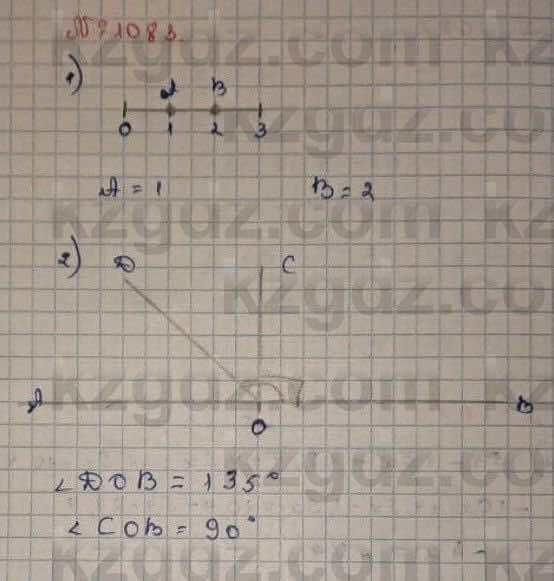 № 1083.
1)
A B
0 1 2 3
A = 1 B = 2
2) D C
A B
O
∠DOB = 135°
∠COB = 90°
kzgdz.com
kzgdz.com
kzgdz.com
kzgdz.com
kzgdz.com